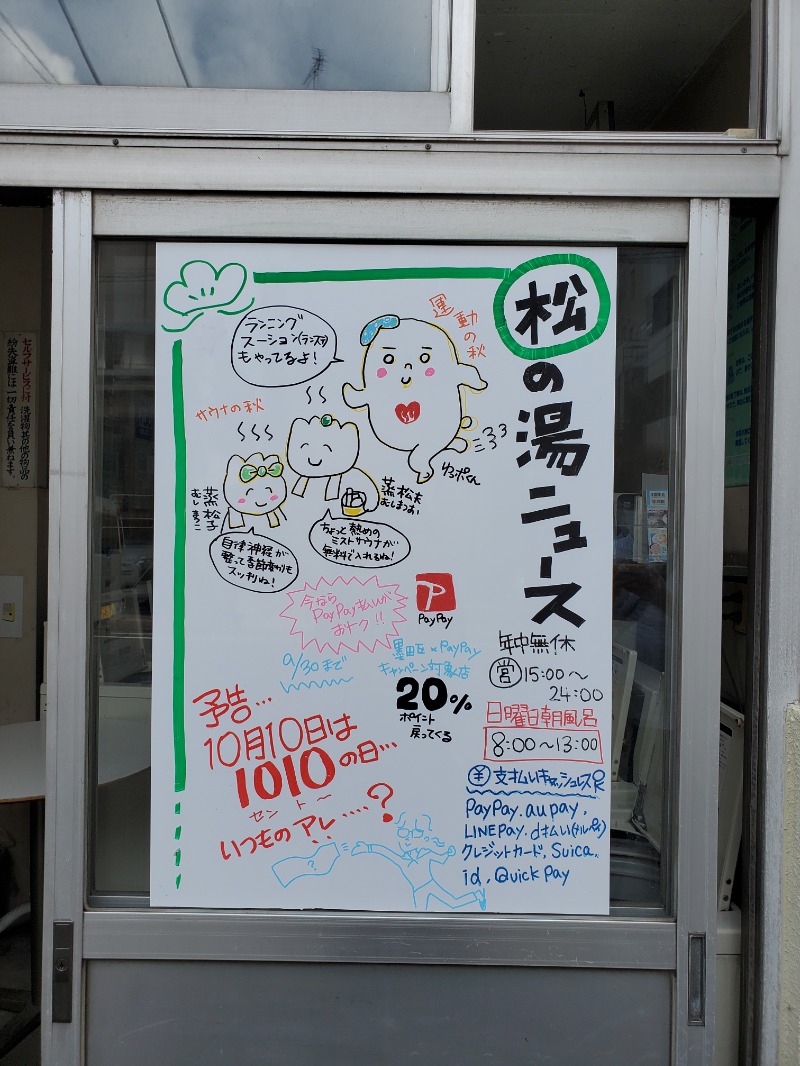 松の湯ニュース
運動の秋
ランニング
スーション(ランステ)
もやってるよ！
ゆっポくん
サウナの秋
蒸松子
むしまつこ
蒸松夫
むしまつお
自律神経が
整って季節変わりも
スッキリね！
ちょっと熱めの
ミストサウナが
無料で入れるね！
今なら
PayPay払いが
おトク!!
9/30まで
PayPay
墨田区×PayPay
キャンペーン対象店
20%
ポイント
戻ってくる
予告…
10月10日は
1010の日…
セントー
いつものアレ……?
?
年中無休
営 15:00〜
24:00
日曜日朝風呂
8:00〜13:00
¥ 支払いキャッシュレスOK
PayPay.aupay,
LINEPay.d払い(メルペイ)
クレジットカード, Suica.
id, Quick pay
セルフサービスに付
洗濯物其の他の物品の
紛失盗難には一切責任を負い兼ねます。